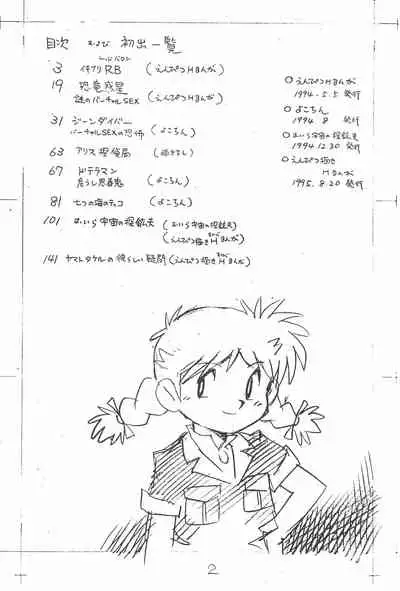 目次 および 初出一覧
3 イキナリRB (えんぴつHまんが)
19 恐竜惑星
謎のバーチャルSEX
31 ジーンダイバー
バーチャルSEXの恐怖 (よこちん)
63 アリス探偵局 (描き下し)
67 ドテラマン
危うし忍者鬼 (よこちん)
81 七つの海のティコ (よこちん)
101 むいら宇宙の探鉱夫 (むいら宇宙の探鉱夫)
(えんぴつ描きHまんが)
141 ヤマトタケルの彼らしい疑問 (えんぴつ描きHまんが)
○えんぴつHまんが
1994.5.5 発行
○よこちん
1994 8 発行
○むいら宇宙の探鉱夫
1994 12 30 発行
○えんぴつ描き
Hまんが
1995.8.20 発行
2